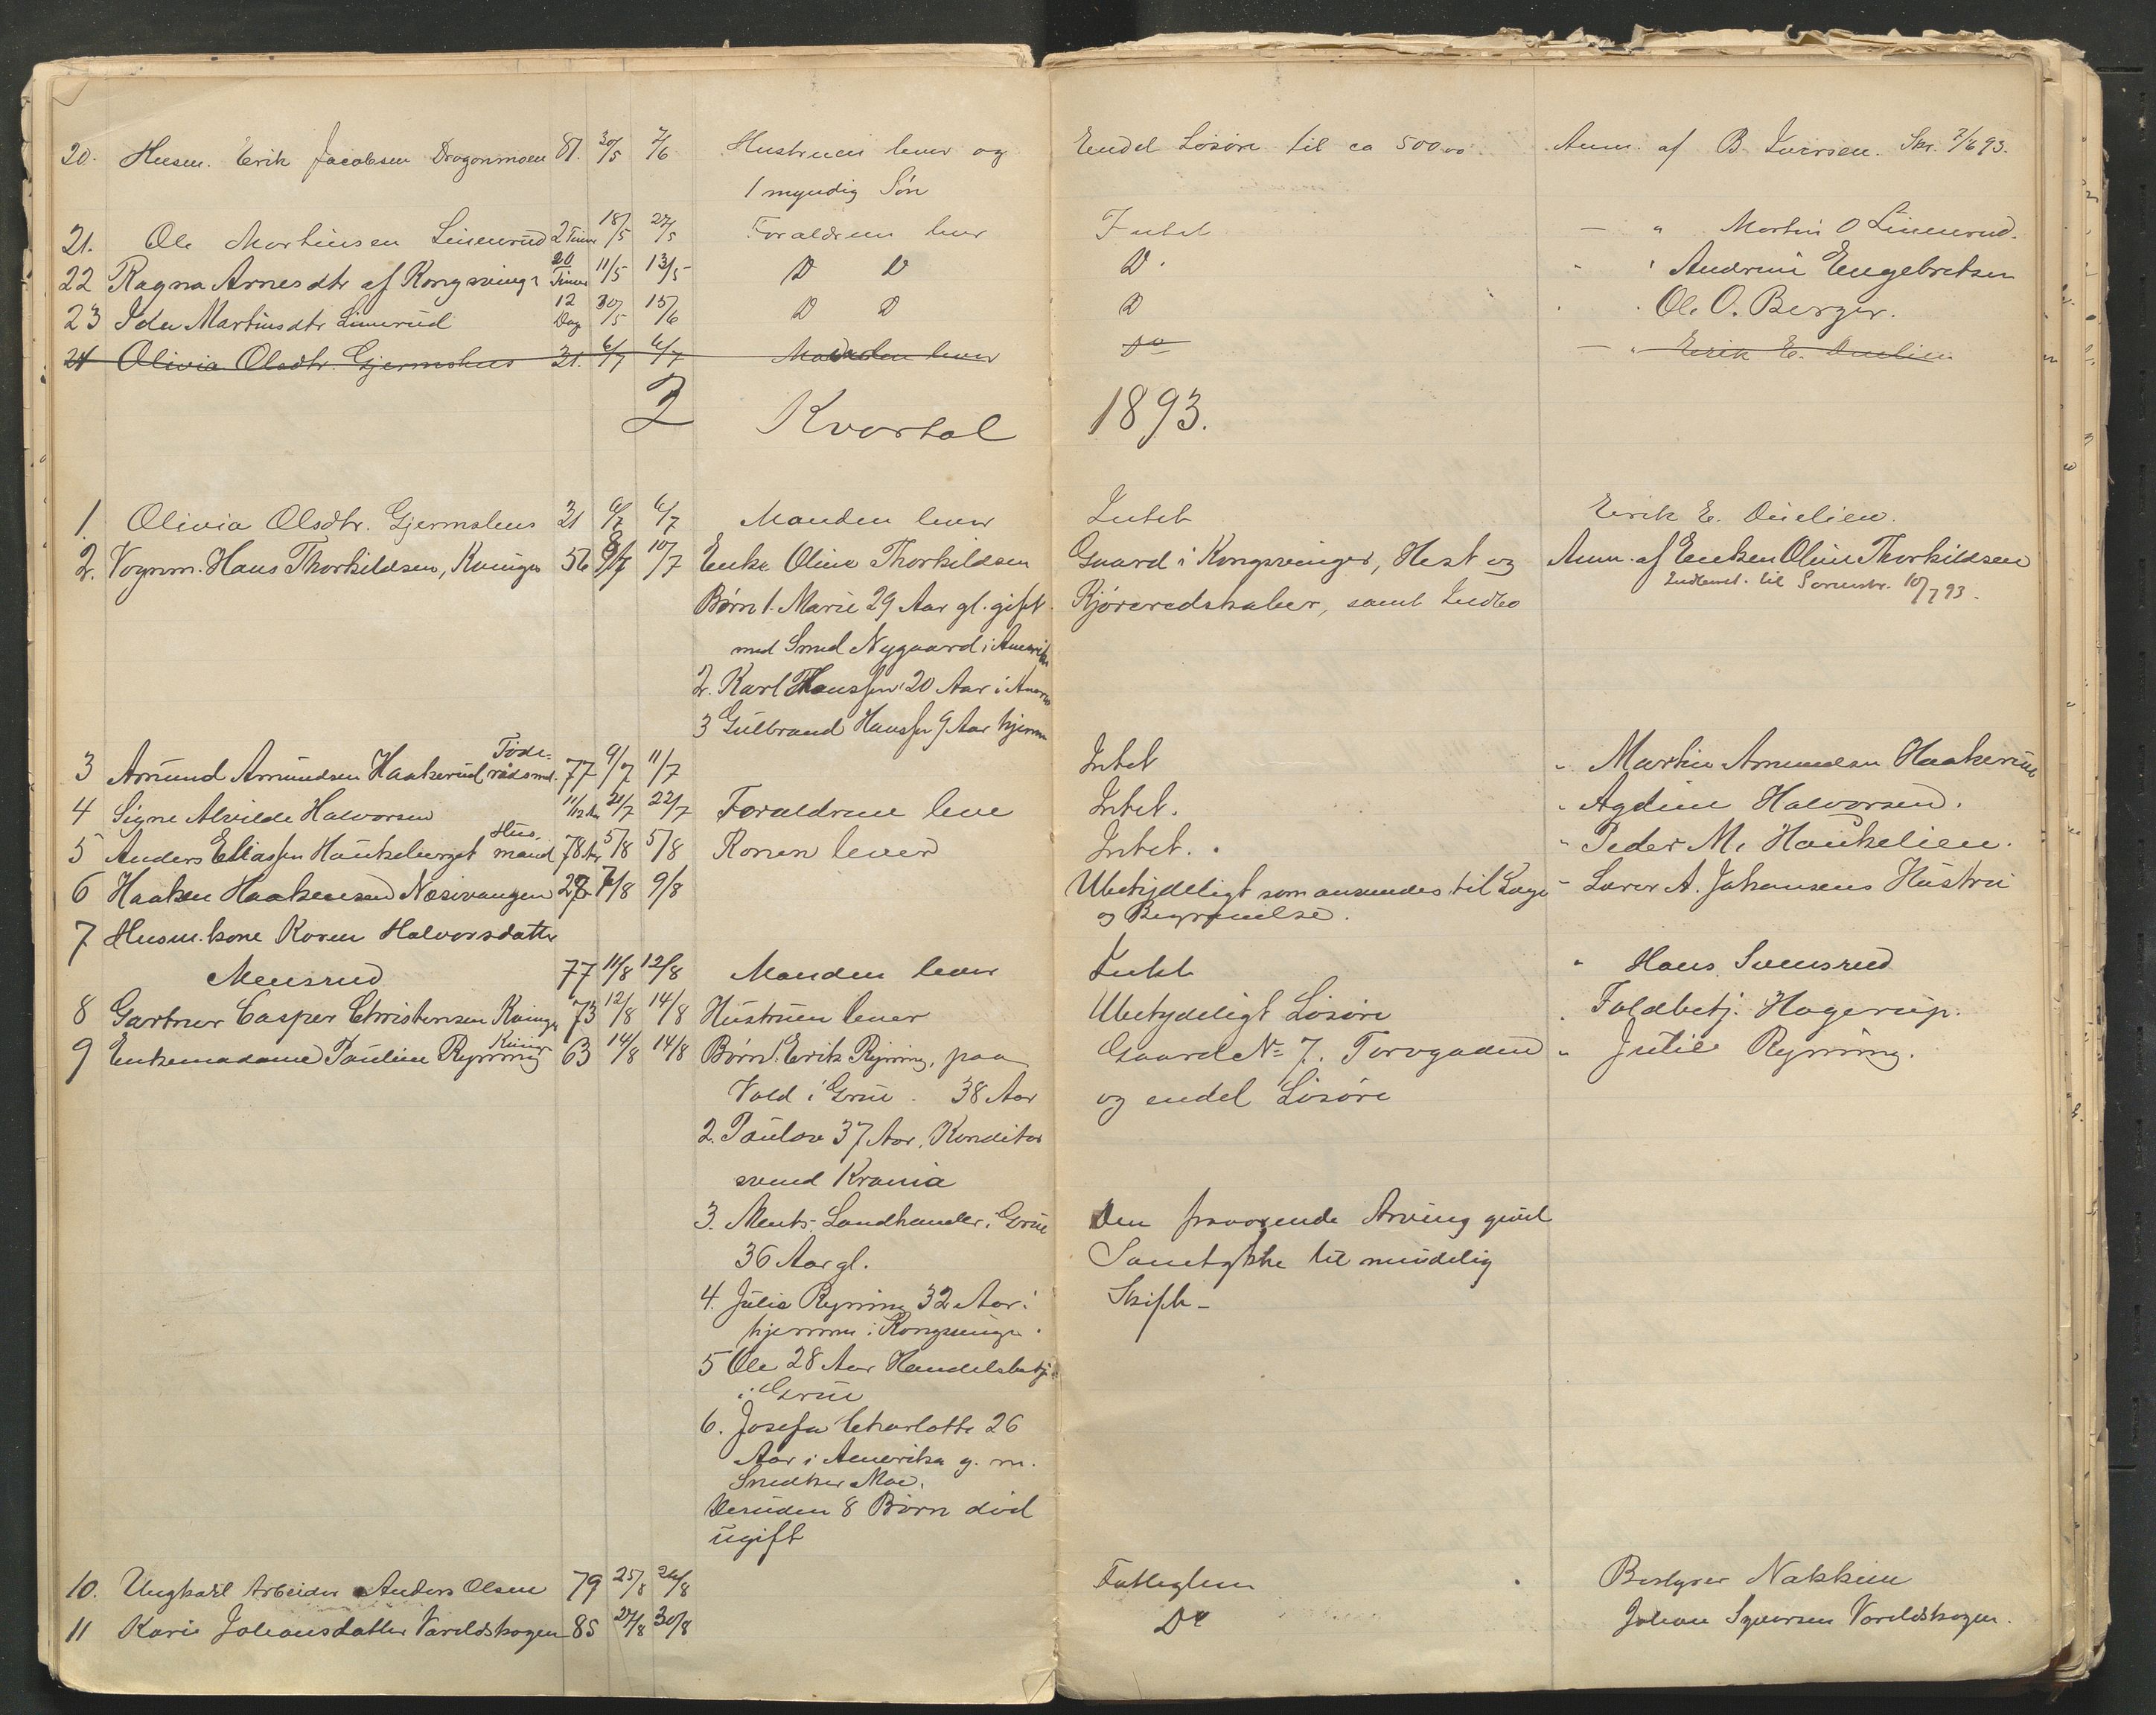 20. Husm. Erik Jacobsen Dragonmoen 81. 30/5 7/6 Hustruen lever og Endel Løsøre til ca 500,00 Anm. af B. Iversen. Skr. 7/6 93.
1 myndig Søn
21. Ole Martinsen Linnerud 2 Timer 18/5 27/5 Forældrene lever Intet — " Martin O Linnerud.
22 Ragna Arnesdtr af Kongsvingr 20 Timer 11/5 13/5 D D D. " Andrine Engebretsen
23 Ida Martinsdtr Linnerud 12 Dage 30/5 15/6 D D D " Ole O. Berger.
24 Olivia Olsdtr. Gjermshus 31. 6/7 6/7 Manden lever Do — " Erik E.
2 Kvartal 1893.
1. Olivia Olsdtr. Gjermshus 31 6/7 6/7 Manden lever Intet Erik E.
2. Vognm. Hans Thorkildsen, Kvinger 56 8/7 10/7 Enke Oline Thorkildsen Gaard i Kongsvinger, Hest og Anm. af Enken Oline Thorkildsen
Indlevet. til Sorenskr. 10/7 93.
Børn 1. Marie 29 Aar gl. gift Kjøreredskaber, samt Indbo
med Smed Nygaard i Amerika
2. Karl Hanssen 20 Aar i Amerika
3 Gulbrand Hanssen 9 Aar hjemme
3 Amund Amundsen Haakerud Føderådsmd. 77 9/7 11/7 Intet " Martin Amundsen Haakerud
4 Signe Alvilde Halvorsen 11/12 Aar 21/7 22/7 Forældrene leve Intet. " Agdine Halvorsen.
5 Anders Eliassen Haukelierget Husmand 78 Aar 5/8 5/8 Konen lever Intet. " Peder M. Haukelien.
6 Haaken Haakensen Næsivangen 7/8 9/8 Ubetydeligt som ansendes til Læge " Lærer A. Johansens Hustru
og Begravelse.
7 Husm. kone Karen Halvorsdatter
Mensrud 77 11/8 12/8 Manden lever Intet " Hans Svensrud
8 Gartner Casper Christensen Kvinger 73 12/8 14/8 Hustruen lever Ubetydeligt Løsøre " Toldbetj. Hagerup.
9 Enkemadame Pauline Rynning Kvinger 63 14/8 14/8 Børn 1. Erik Rynning, paa Gaard No 7. Torvgaden " Julie Rynning.
Vold i Grue. 38 Aar og endel Løsøre
2. Paulus 37 Aar. Konditor
svend Krania
3. Ments. Landhandler i Grue Den fraværende Arving givet
36 Aar gl. Samtykke til mindelig
4. Julie Rynning 32 Aar: Skifte –
hjemme i Kongsvinger.
5 Ole 28 Aar Handelsbetj.
i Grue
6. Josefa Charlotte 26
Aar i Amerika g. m.
Snedker Moe.
Desuden 8 Børn død
ugift
10. Ungkarl Arbeider Anders Olsen 79 25/8 26/8 Fattiglem Bestyrer Nakkim
11 Kari Johansdatter Varaldskogen 85 27/8 30/8 Do Johan Syversen Varaldskogen.